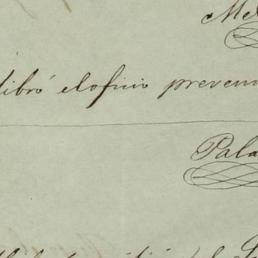 Me
libró el oficio preveni
Pala